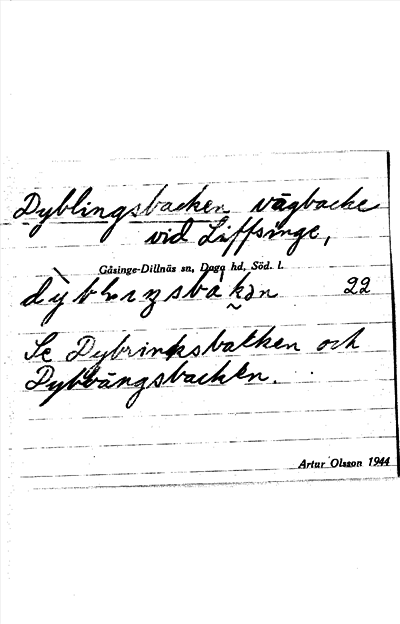 Dyblingsbacken vägbacke
vid Liffsinge,
Gåsinge-Dillnäs sn, Daga hd, Söd. l.
22
Se Dybrinksbacken och
Dybvängsbacken.
Artur Olsson 1944